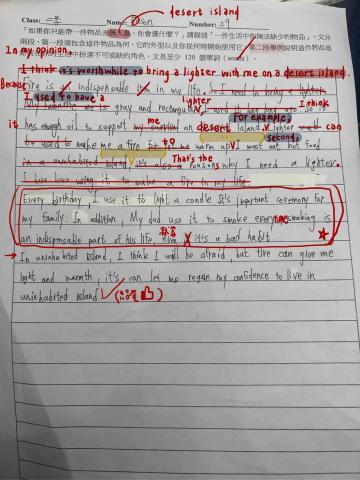 desert island
Class: 二美 Name: Olsen Number: 29
「如果你只能帶一件物品去無人島，你會選什麼？」請描述「一份生活中你無法缺少的物品」，文分
兩段，第一段須包含這件物品為何，它的外型以及你從何時開始使用它，第二段舉例說明這件物品是
文長至少 120 個單詞（words）。
In my opinion,
I think it is worthwhile to bring a lighter with me on a desert island.
Because fire is an indispensable in my life. So I need to bring a lighter.
I used to have a lighter I think
My is gray and rectangular,
me For example,
it has enough oil to support my survival on desert island. V lighter can
to second,
be used to make me a fire for me warm up V I must eat hot food
That's the
in a uninhabited island, it's also a reasons why I need a lighter.
I have been using it to make a fire in my life.
Every birthday, I use it to light a candle. It's important ceremony for
my family. In addition, My dad use it to smoke everytime smoking is
an indispensable part of his life, even it's a bad habit.
In uninhabited island, I think I will be afraid, but fire can give me
light and warmth, it's can let me regain my confidence to live in
uninhabited island.